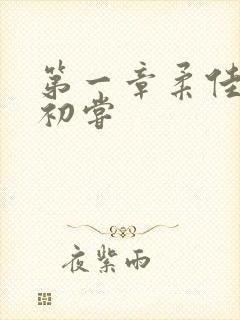 第一章柔佳
初尝
夜紫雨